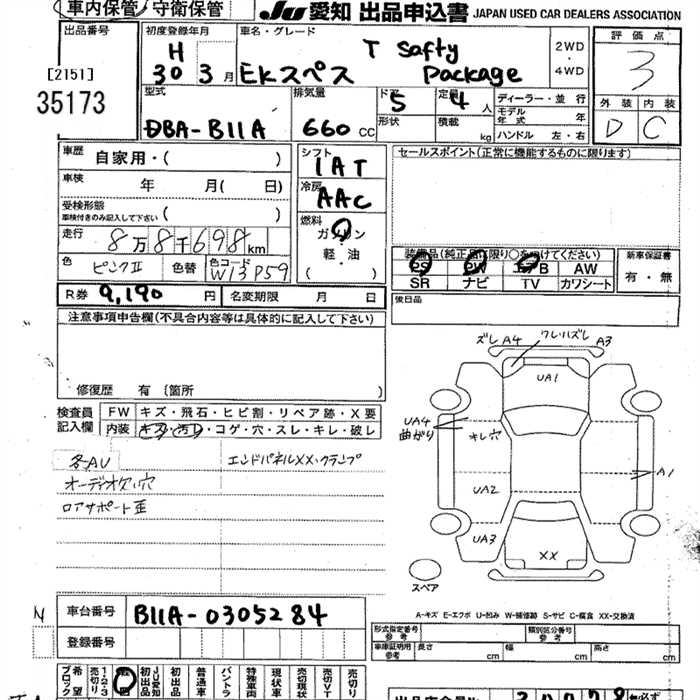 車内保管 / 守衛保管
JU 愛知 出品申込書 JAPAN USED CAR DEALERS ASSOCIATION
出品番号
[2151]
35173
初度登録年月
H
30 3 月
車名・グレード
T Safty
EKスペス Package
2WD
・
4WD
評価点
3
外装 内装
D C
型式
DBA-B11A
排気量
660 CC
ドア 5
形状
定員 4 人
積載 kg
ディーラー・並行
モデル
年式 年
ハンドル 左・右
車歴 自家用・( )
車検 年 月( 日)
受検形態
車検付きのみ記入して下さい ( )
走行 8万8千698km
色 ピンクII 色替 色コード
W13P59
シフト
1AT
冷房
AAC
燃料
ガソリン
軽・油
( )
セールスポイント(正常に機能するものに限ります)
装備品(純正品に限り○をつけてください)
PS PW エアB AW
SR ナビ TV カワシート
新車保証書
有・無
R券 9,190 円 名変期限 月 日
後日品
注意事項申告欄(不具合内容等は具体的に記入して下さい)
修復歴 有 (箇所
検査員
記入欄
FW キズ・飛石・ヒビ割・リペア跡・X要
内装 キズ・汚れ・コゲ・穴・スレ・キレ・破レ
各AU エンドパネルXX・クランプ
オーディオ欠・穴
ロアサポート亜
ズレ A4 ワレ・ハズレ A3
UA1
UA4
曲がり
キレ 穴
A1
UA2
UA3
XX
スペア
A-キズ E-エクボ U-凹み W-補修跡 S-サビ C-腐食 XX-交換済
N
車台番号 B11A-0305284
登録番号
形式指定番号
参考
類別区分番号
参考
車庫証明用
参考
長さ cm 幅 cm 高さ cm
希望
ブロック
売切り
1・2・3
初出品
JU愛知
初出品
普通車
バントラ
特殊車両
現状車
売切現状
売切VT